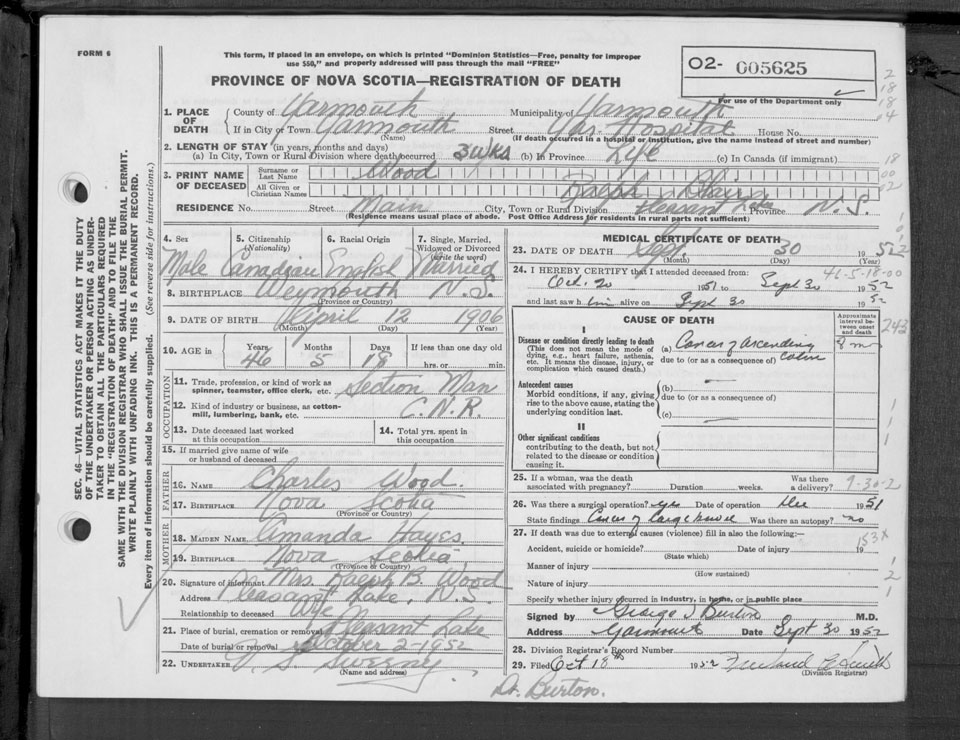 FORM 6
This form, if placed in an envelope, on which is printed "Dominion Statistics—Free, penalty for improper
use $50," and properly addressed will pass through the mail "FREE"
PROVINCE OF NOVA SCOTIA—REGISTRATION OF DEATH
O2- 005625
For use of the Department only
1. PLACE OF DEATH
County of Yarmouth Municipality of Yarmouth
If in City or Town Yarmouth Street Yar. Hospital House No.
(Name) (If death occurred in a hospital or institution, give the name instead of street and number)
2. LENGTH OF STAY (in years, months and days)
(a) In City, Town or Rural Division where death occurred 3 wks (b) In Province Life (c) In Canada (if immigrant)
3. PRINT NAME OF DECEASED
Surname or Last Name Wood
All Given or Christian Names Ralph Blair
RESIDENCE No. Street Main City, Town or Rural Division Pleasant Lake Province N.S.
(Residence means usual place of abode. Post Office Address for residents in rural parts not sufficient)
4. Sex 5. Citizenship (Nationality) 6. Racial Origin 7. Single, Married, Widowed or Divorced (write the word)
Male Canadian English Married
8. BIRTHPLACE Weymouth N.S.
(Province or Country)
9. DATE OF BIRTH April 12 1906
(Month) (Day) (Year)
10. AGE in Years Months Days If less than one day old
46 5 18 hrs. or min.
OCCUPATION
11. Trade, profession, or kind of work as spinner, teamster, office clerk, etc. Section Man
12. Kind of industry or business, as cotton-mill, lumbering, bank, etc. C.N.R.
13. Date deceased last worked at this occupation 14. Total yrs. spent in this occupation
15. If married give name of wife or husband of deceased
FATHER
16. NAME Charles Wood.
17. BIRTHPLACE Nova Scotia
(Province or Country)
MOTHER
18. MAIDEN NAME Amanda Hayes.
19. BIRTHPLACE Nova Scotia
(Province or Country)
20. Signature of informant Mrs. Ralph B. Wood
Address Pleasant Lake, N.S.
Relationship to deceased Wife
21. Place of burial, cremation or removal Pleasant Lake
Date of burial or removal October 2-1952
22. UNDERTAKER V. S. Sweeny
(Name and address)
MEDICAL CERTIFICATE OF DEATH
23. DATE OF DEATH Sept. 30 1952
(Month) (Day) (Year)
46-5-18-00
24. I HEREBY CERTIFY that I attended deceased from
Oct. 20 1951 to Sept 30 1952
and last saw him alive on Sept 30 1952
CAUSE OF DEATH
Approximate interval between onset and death
243
I
Disease or condition directly leading to death
(This does not mean the mode of dying, e.g., heart failure, asthenia, etc. It means the disease, injury, or complication which caused death.)
(a) Cancer of ascending colon
due to (or as a consequence of)
Antecedent causes
Morbid conditions, if any, giving rise to the above cause, stating the underlying condition last.
(b) —
due to (or as a consequence of)
(c) —
II
Other significant conditions
contributing to the death, but not related to the disease or condition causing it.
25. If a woman, was the death associated with pregnancy? Duration weeks. Was there a delivery? 9-30-2
26. Was there a surgical operation? yes Date of operation Dec 1951
State findings Cancer of large bowel Was there an autopsy? no
27. If death was due to external causes (violence) fill in also the following:—
153X
Accident, suicide or homicide? Date of injury 19
(State which)
Manner of injury
(How sustained)
Nature of injury
Specify whether injury occurred in industry, in home, or in public place
Signed by George V Burton M.D.
Address Yarmouth Date Sept 30 1952
28. Division Registrar's Record Number
29. Filed Oct 18th 1952
(Division Registrar)
Dr. Burton.
SEC. 46—VITAL STATISTICS ACT MAKES IT THE DUTY
OF THE UNDERTAKER OR PERSON ACTING AS UNDER-
TAKER TO OBTAIN ALL THE PARTICULARS REQUIRED
IN THE "REGISTRATION OF DEATH" AND TO FILE THE
SAME WITH THE DIVISION REGISTRAR WHO SHALL ISSUE THE BURIAL PERMIT.
WRITE PLAINLY WITH UNFADING INK. THIS IS A PERMANENT RECORD.
Every item of information should be carefully supplied. (See reverse side for instructions.)